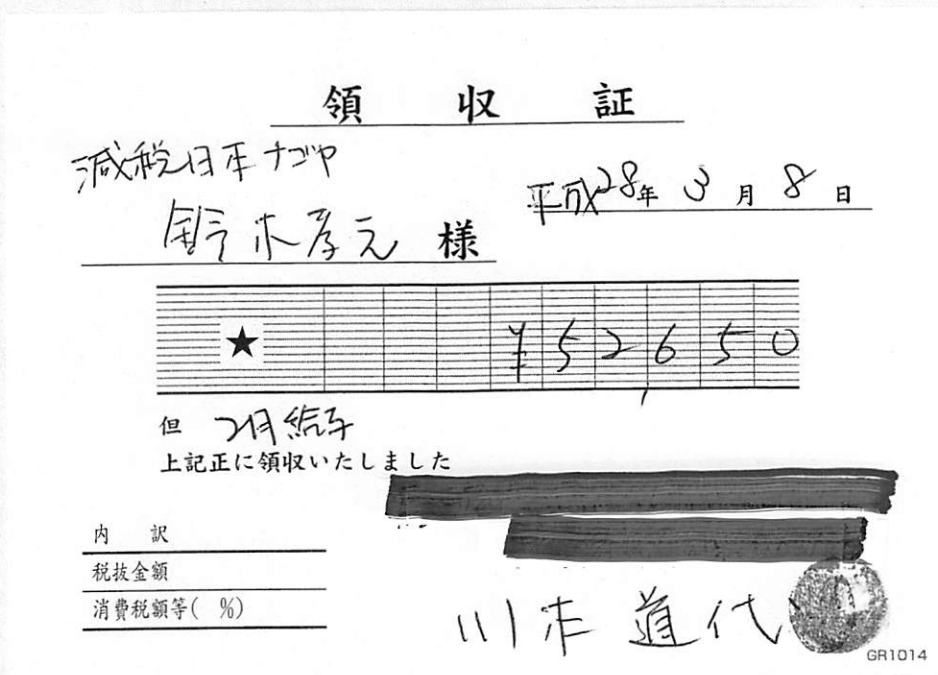 領収証
減税日本ナゴヤ
平成28年3月8日
鈴木孝元様
★ ¥52650
但 2月給与
上記正に領収いたしました
内訳
税抜金額
消費税額等( %)
道代
GR1014